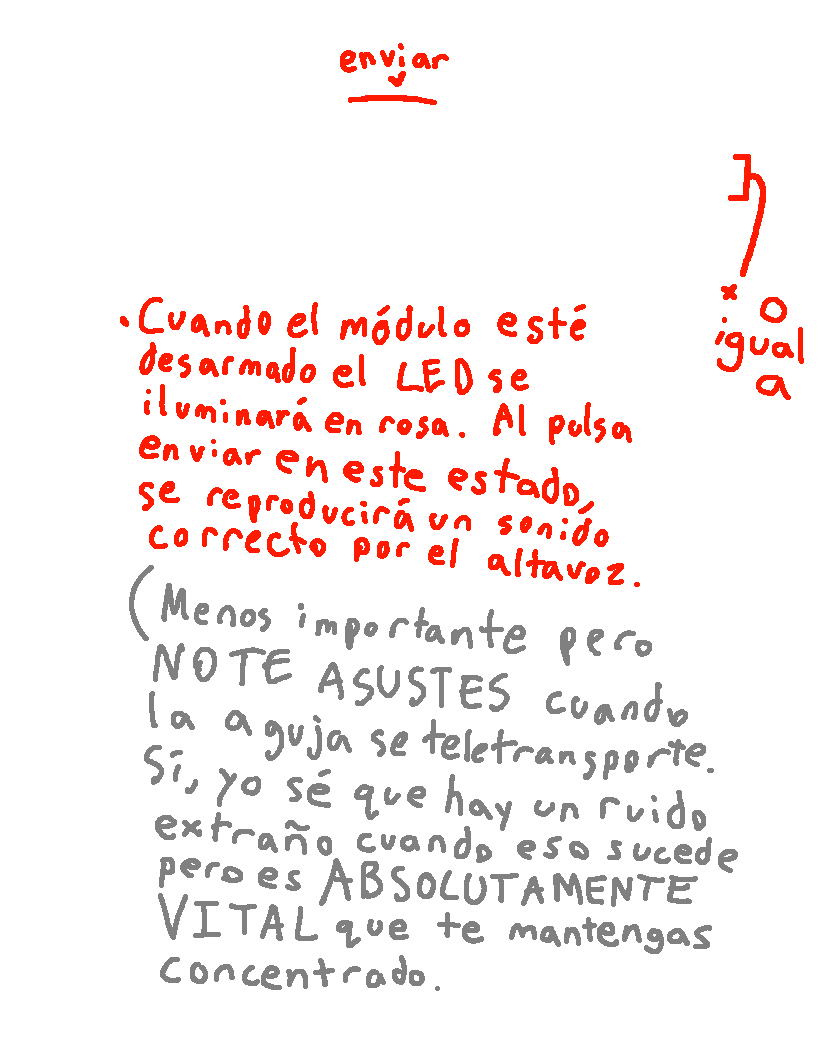 enviar
x o
igual
a
. Cuando el módulo esté
desarmado el LED se
iluminará en rosa. Al pulsa
enviar en este estado,
se reproducirá un sonido
correcto por el altavoz.
(Menos importante pero
NO TE ASUSTES cuando
la aguja se teletransporte.
Sí, yo sé que hay un ruido
extraño cuando eso sucede
pero es ABSOLUTAMENTE
VITAL que te mantengas
concentrado.